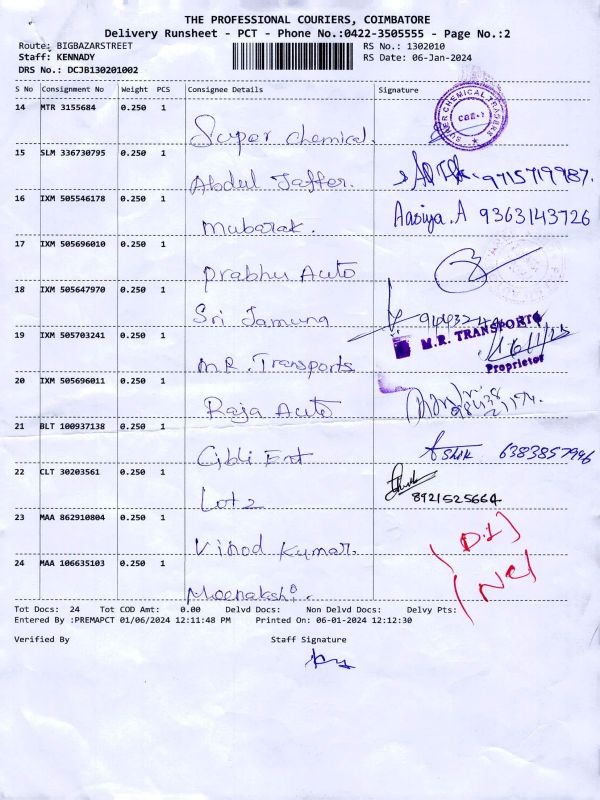 THE PROFESSIONAL COURIERS, COIMBATORE
Delivery Runsheet - PCT - Phone No.:0422-3505555 - Page No.:2
Route: BIGBAZARSTREET RS No.: 1302010
Staff: KENNADY RS Date: 06-Jan-2024
DRS No.: DCJB130201002
S No Consignment No Weight PCS Consignee Details Signature
14 MTR 3155684 0.250 1 Super chemical. SUPER CHEMICAL TRADERS
15 SLM 336730795 0.250 1 Abdul Jaffer. 9715719987.
16 IXM 505546178 0.250 1 Mubarak. Aasiya.A 9363143726
17 IXM 505696010 0.250 1 Prabhu Auto
18 IXM 505647970 0.250 1 Sri Jamuna
19 IXM 505703241 0.250 1 M.R. Transports M.R. TRANSPORTS
Proprietor
20 IXM 505696011 0.250 1 Raja Auto
21 BLT 100937138 0.250 1 Gibli Ent Ashik 6383857996
22 CLT 30203561 0.250 1 Lotz 8921525664
23 MAA 862910804 0.250 1 Vinod Kumar.
24 MAA 106635103 0.250 1 Meenakshi.
Tot Docs: 24 Tot COD Amt: 0.00 Delvd Docs: Non Delvd Docs: Delvy Pts:
Entered By :PREMAPCT 01/06/2024 12:11:48 PM Printed On: 06-01-2024 12:12:30
Verified By Staff Signature